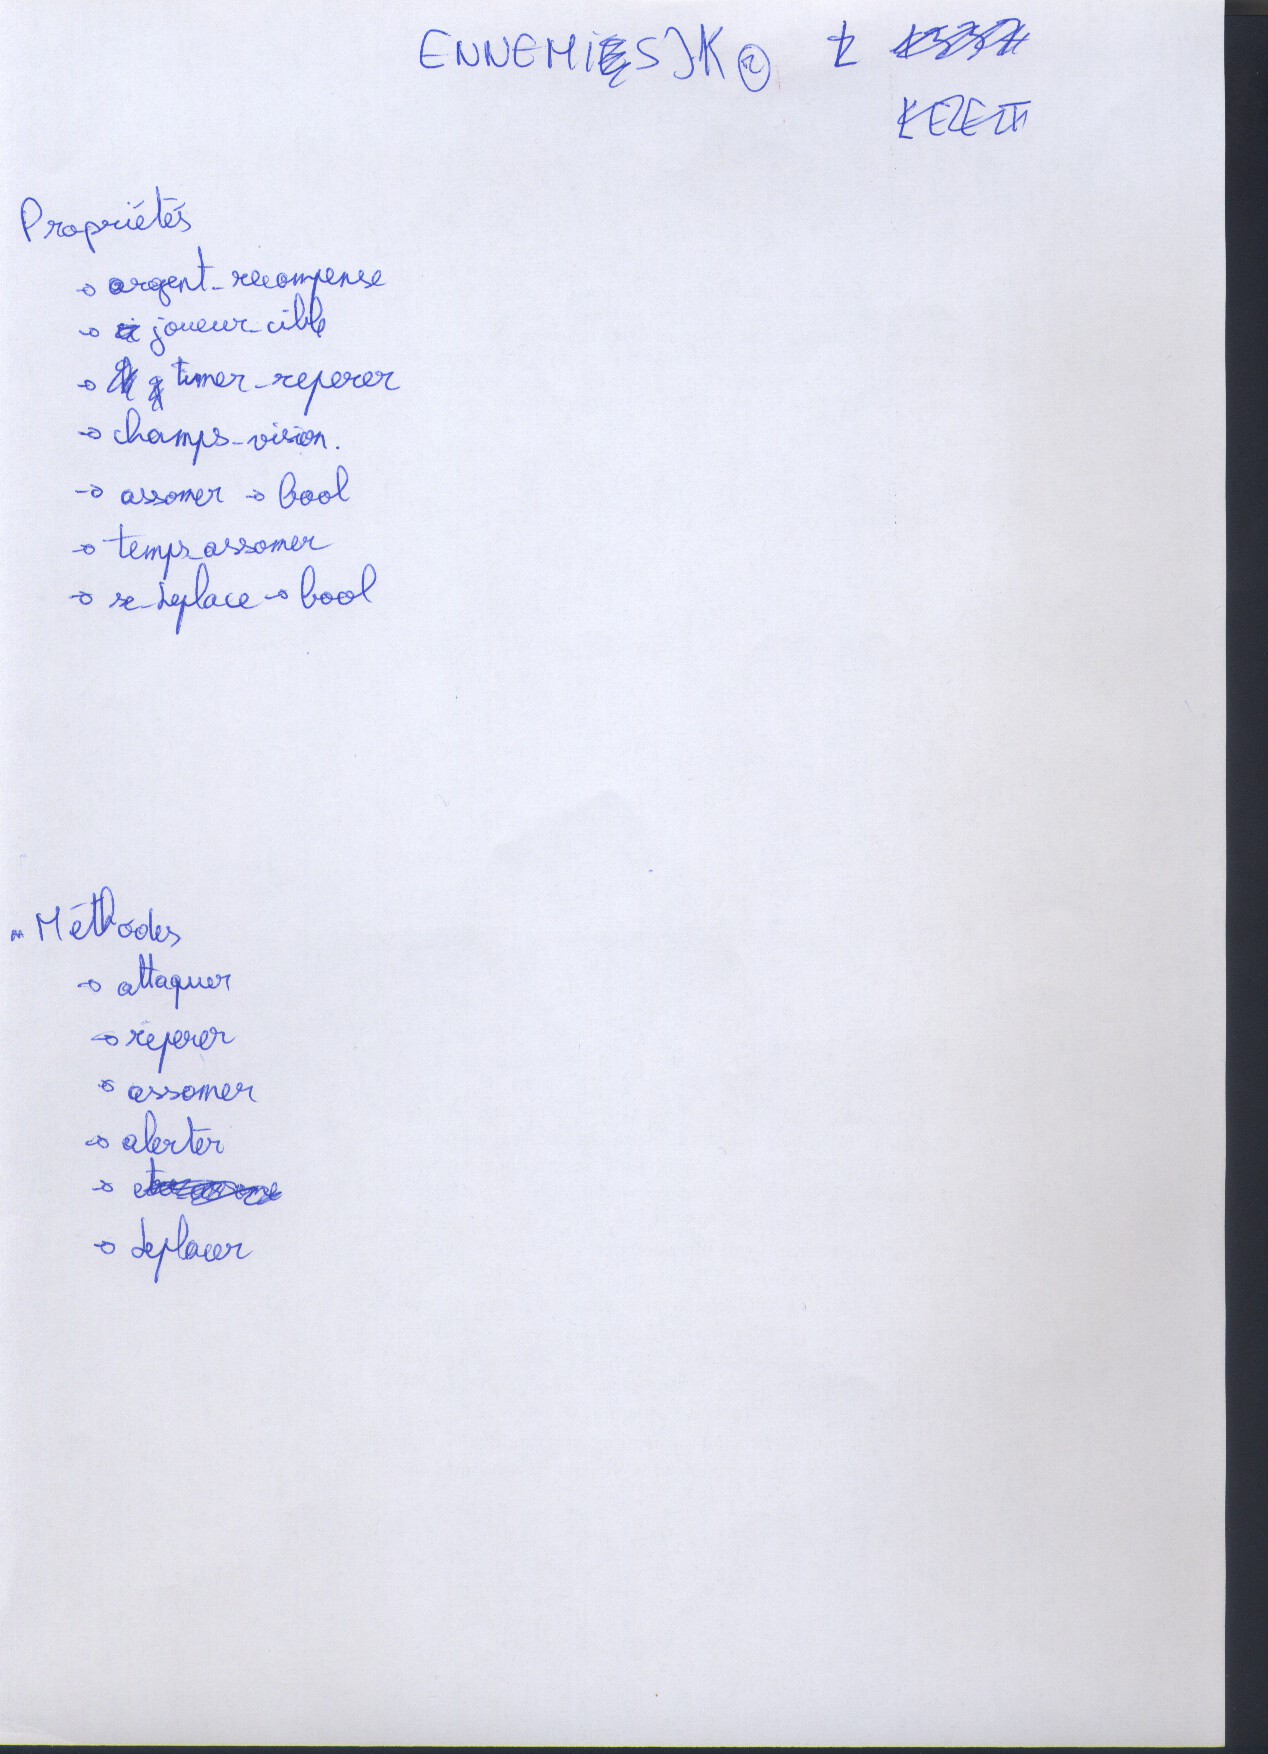 ENNEMIS
Propriétés
→ argent_recompense
→ joueur_cible
→ timer_reperer
→ champs_vision.
→ assomer → bool
→ temps_assomer
→ se_deplace → bool
Méthodes
→ attaquer
→ reperer
→ assomer
→ alerter
→ deplacer